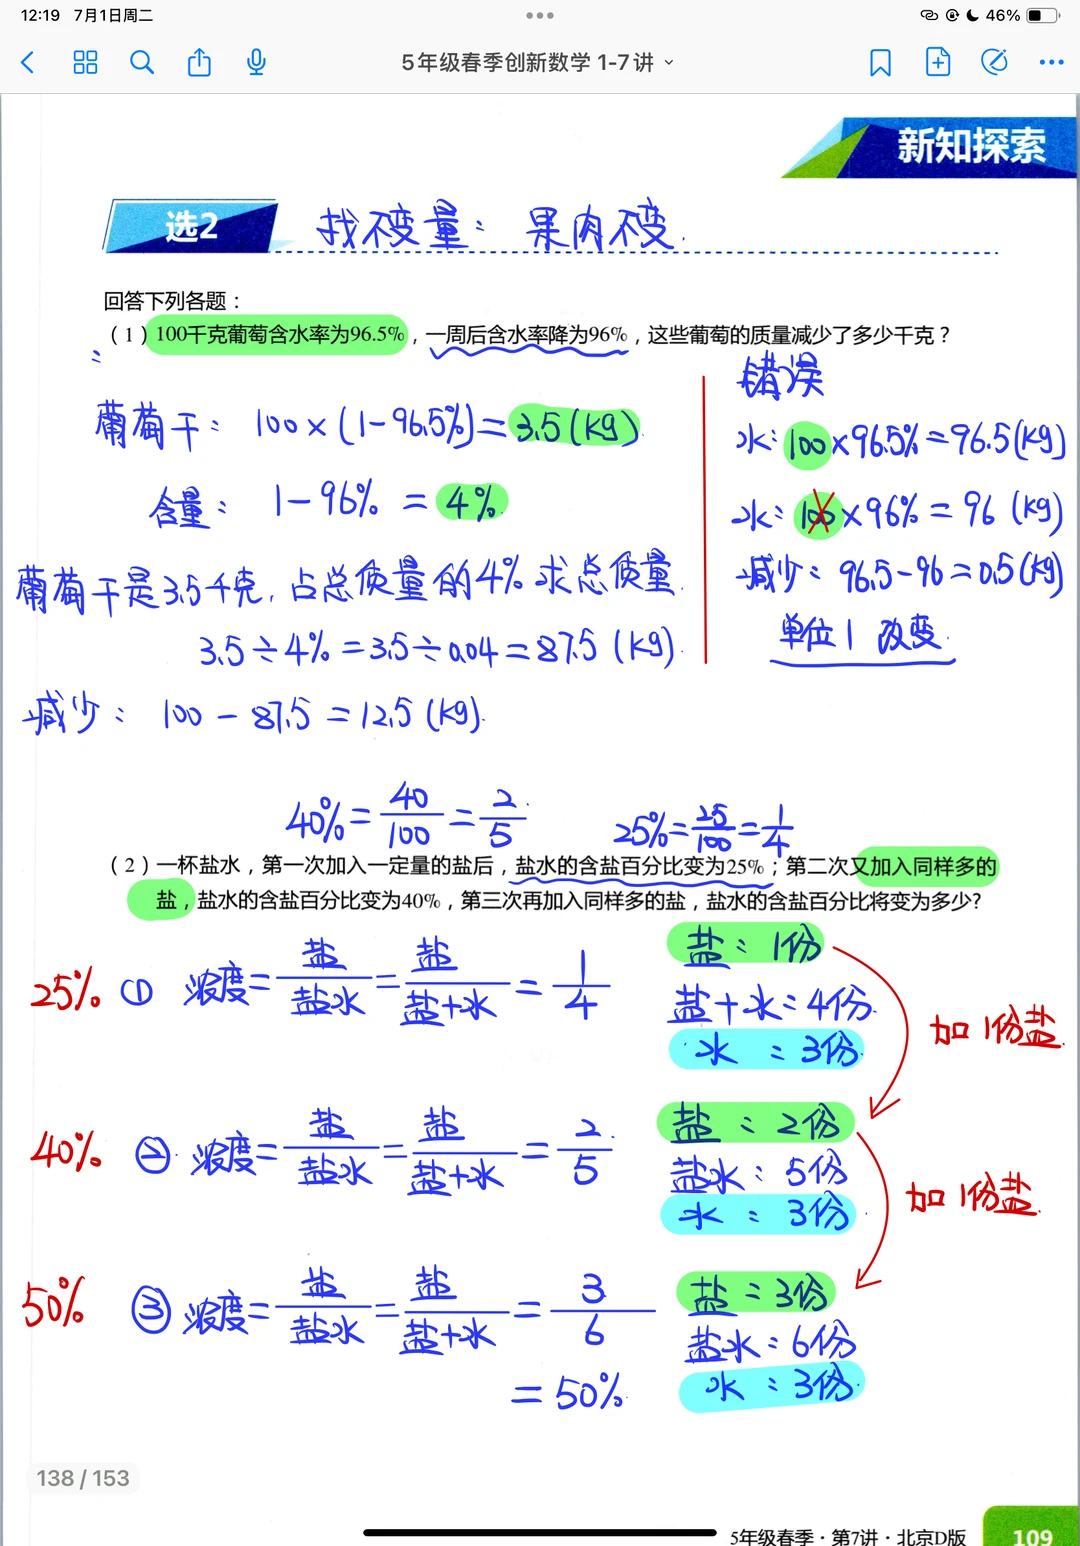 12:19 7月1日周二
46%
5年级春季创新数学 1-7讲
新知探索
选2
找不变量：果肉不变.
回答下列各题：
（1）100千克葡萄含水率为96.5%，一周后含水率降为96%，这些葡萄的质量减少了多少千克？
葡萄干：100×(1-96.5%)=3.5(kg)
含量：1-96% = 4%
葡萄干是3.5千克，占总质量的4% 求总质量.
3.5÷4%=3.5÷0.04=87.5 (kg).
减少：100-87.5=12.5(kg).
错误
水：100×96.5%=96.5(kg)
水：100×96%=96 (kg)
减少：96.5-96=0.5(kg)
单位1 改变.
40%=40/100=2/5
25%=25/100=1/4
（2）一杯盐水，第一次加入一定量的盐后，盐水的含盐百分比变为25%；第二次又加入同样多的
盐，盐水的含盐百分比变为40%，第三次再加入同样多的盐，盐水的含盐百分比将变为多少?
25% ① 浓度=盐/盐水=盐/盐+水=1/4
盐：1份
盐+水=4份.
水 ：3份.
加1份盐.
40% ② 浓度=盐/盐水=盐/盐+水=2/5
盐：2份
盐水：5份
水：3份
加1份盐.
50% ③ 浓度=盐/盐水=盐/盐+水=3/6
=50%.
盐：3份
盐水：6份
水：3份.
138 / 153
5年级春季·第7讲·北京D版
109